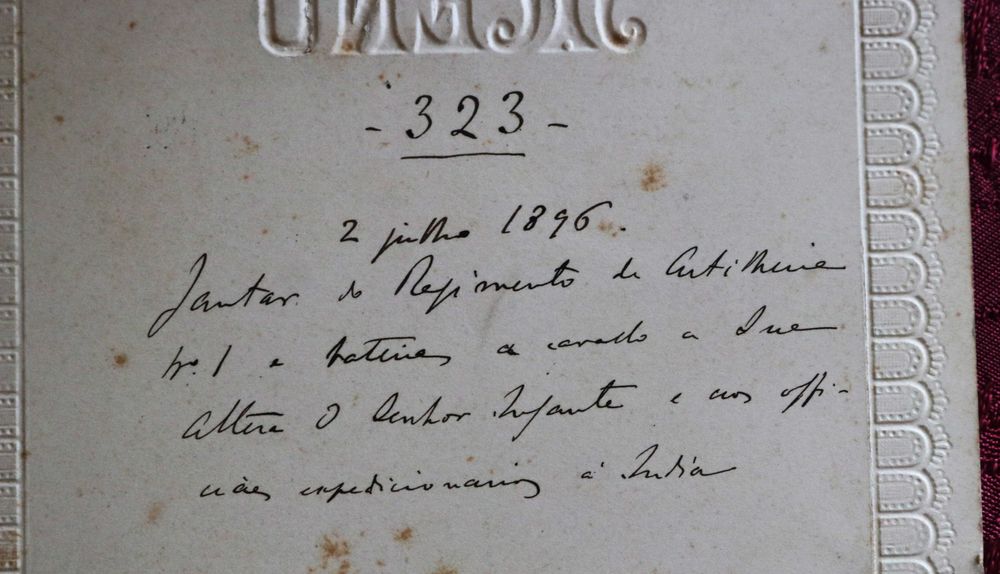 - 323 -
2 julho 1896.
Jantar do Regimento de Artilheria
nº. 1 e baterias a cavallo a Sua
Alteza O Senhor Infante e aos offi-
ciaes expedicionarios á India